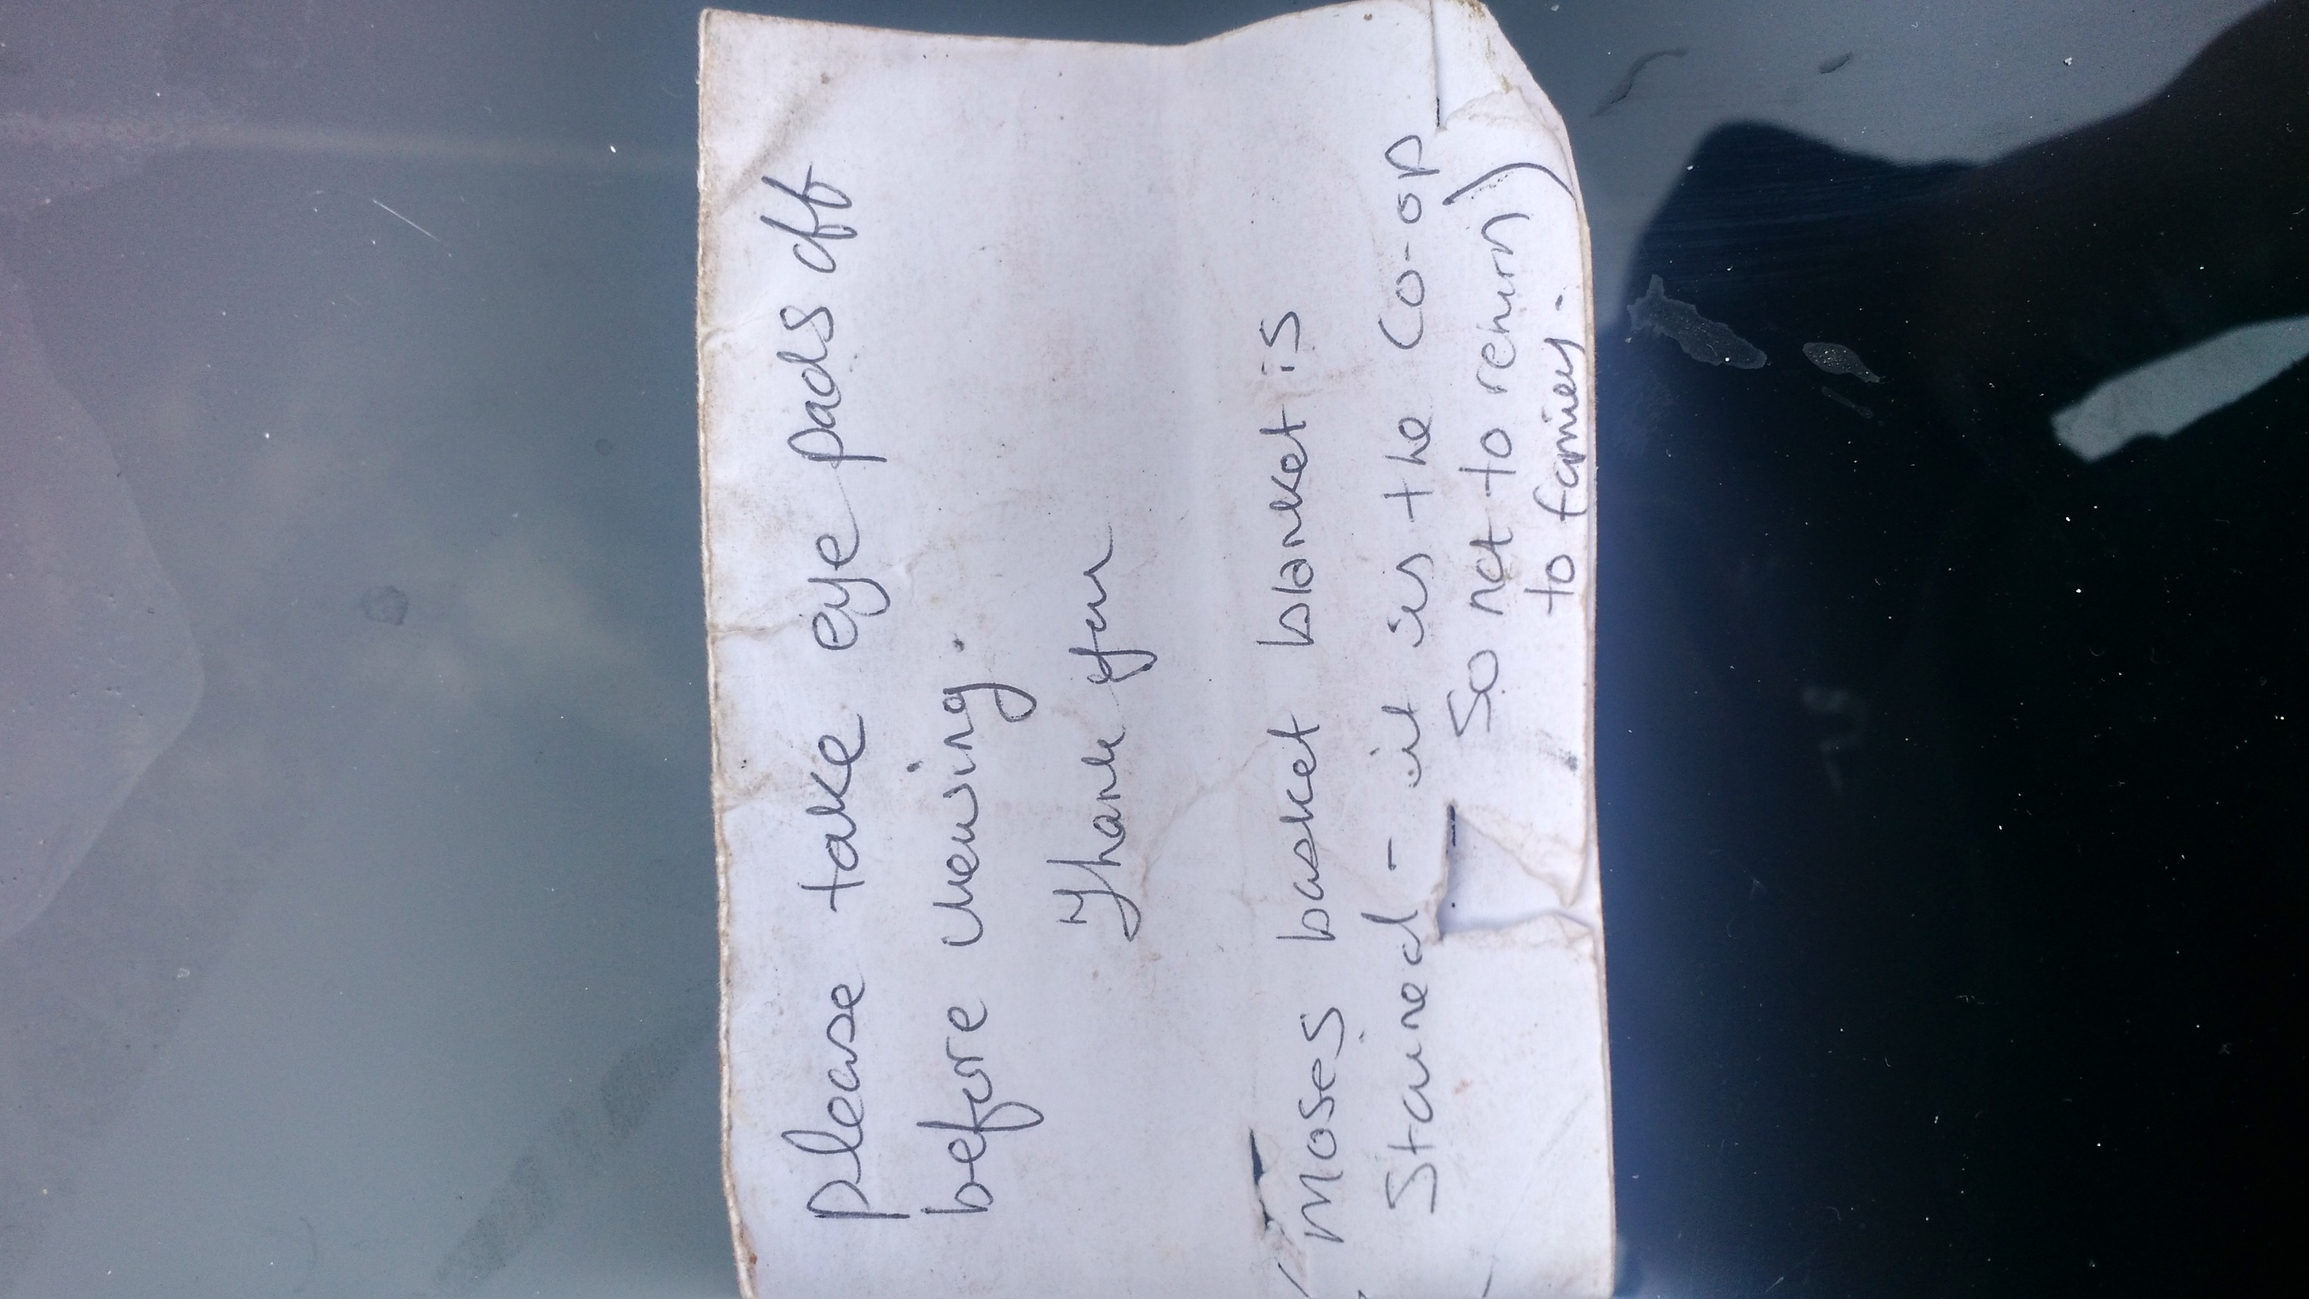 please take eye pads off
before viewing.
Thank you
(Moses basket blanket is
Stained - it is the CO-OP
So not to return)
to family.